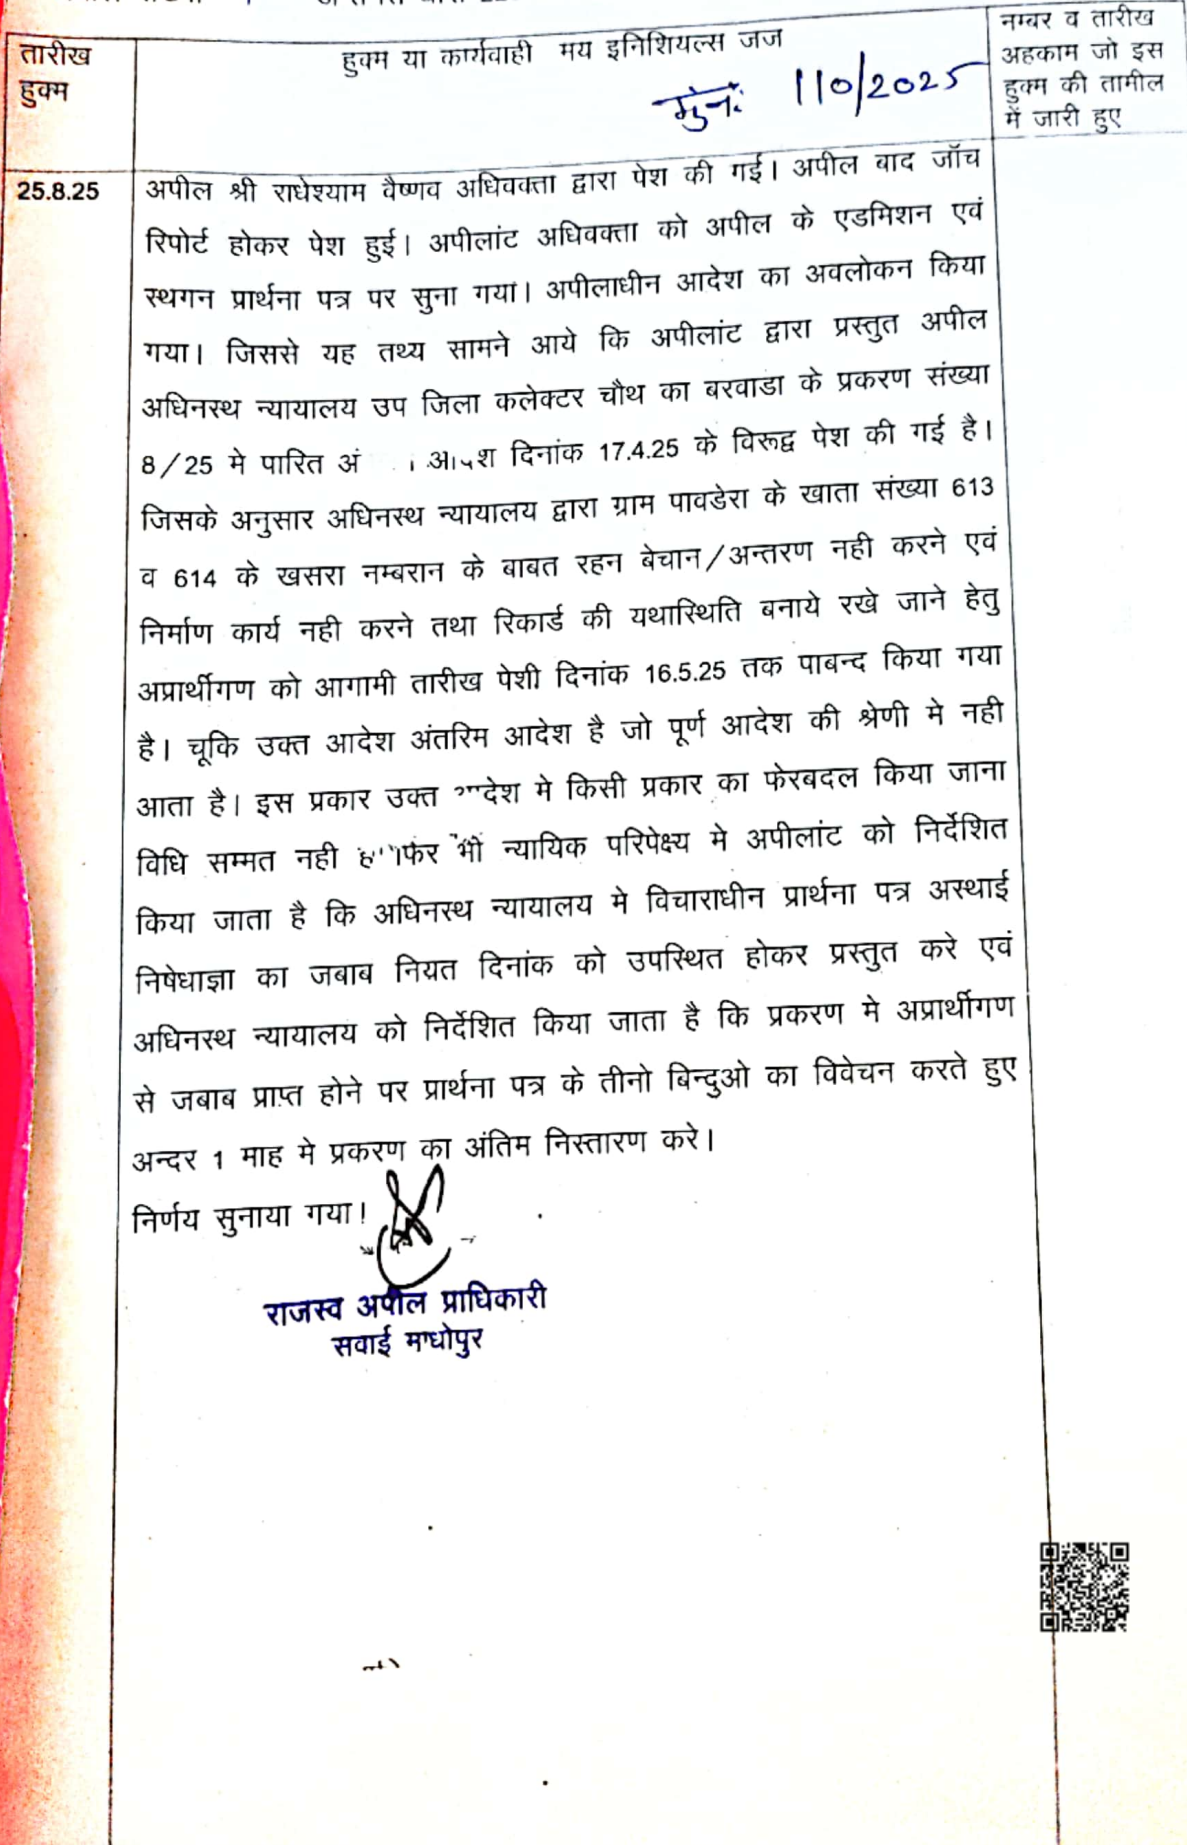 तारीख
हुक्म
हुक्म या कार्यवाही मय इनिशियल्स जज
110/2025
नम्बर व तारीख
अहकाम जो इस
हुक्म की तामील
में जारी हुए
25.8.25
अपील श्री राधेश्याम वैष्णव अधिवक्ता द्वारा पेश की गई। अपील बाद जॉच
रिपोर्ट होकर पेश हुई। अपीलांट अधिवक्ता को अपील के एडमिशन एवं
स्थगन प्रार्थना पत्र पर सुना गया। अपीलाधीन आदेश का अवलोकन किया
गया। जिससे यह तथ्य सामने आये कि अपीलांट द्वारा प्रस्तुत अपील
अधिनस्थ न्यायालय उप जिला कलेक्टर चौथ का बरवाडा के प्रकरण संख्या
8/25 मे पारित दिनांक 17.4.25 के विरूद्व पेश की गई है।
जिसके अनुसार अधिनस्थ न्यायालय द्वारा ग्राम पावडेरा के खाता संख्या 613
व 614 के खसरा नम्बरान के बाबत रहन बेचान/अन्तरण नही करने एवं
निर्माण कार्य नही करने तथा रिकार्ड की यथास्थिति बनाये रखे जाने हेतु
अप्रार्थीगण को आगामी तारीख पेशी दिनांक 16.5.25 तक पाबन्द किया गया
है। चूकि उक्त आदेश अंतरिम आदेश है जो पूर्ण आदेश की श्रेणी मे नही
आता है। इस प्रकार उक्त आदेश मे किसी प्रकार का फेरबदल किया जाना
विधि सम्मत नही फिर भी न्यायिक परिपेक्ष्य मे अपीलांट को निर्देशित
किया जाता है कि अधिनस्थ न्यायालय मे विचाराधीन प्रार्थना पत्र अस्थाई
निषेधाज्ञा का जबाब नियत दिनांक को उपस्थित होकर प्रस्तुत करे एवं
अधिनस्थ न्यायालय को निर्देशित किया जाता है कि प्रकरण मे अप्रार्थीगण
से जबाब प्राप्त होने पर प्रार्थना पत्र के तीनो बिन्दुओ का विवेचन करते हुए
अन्दर 1 माह मे प्रकरण का अंतिम निस्तारण करे।
निर्णय सुनाया गया।
राजस्व अपील प्राधिकारी
सवाई माधोपुर